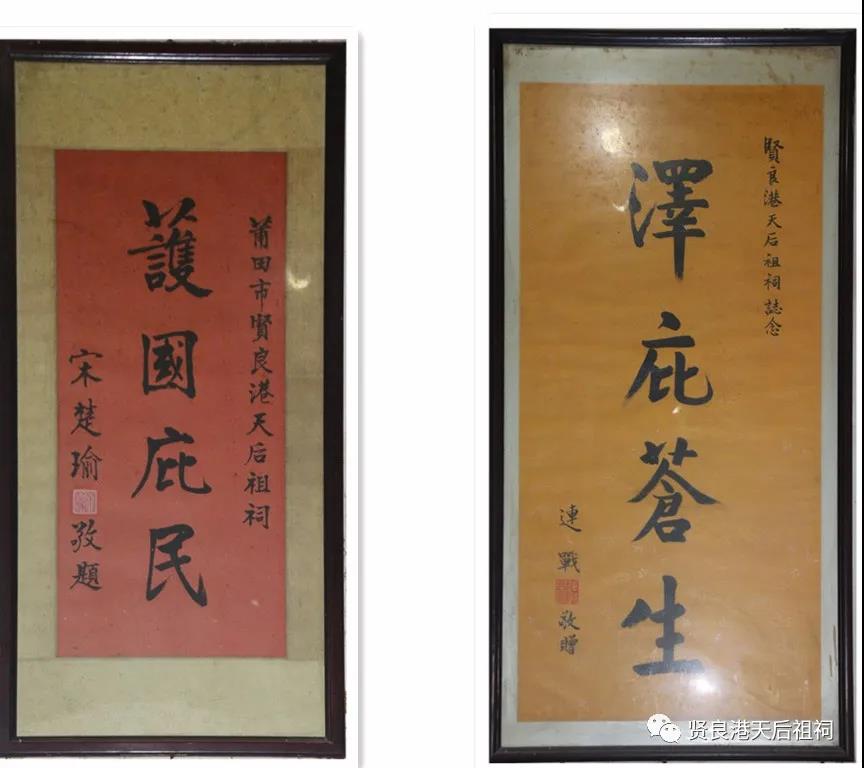 莆田市賢良港天后祖祠
護國庇民
宋楚瑜 敬題
賢良港天后祖祠誌念
澤庇蒼生
連戰 敬贈
贤良港天后祖祠